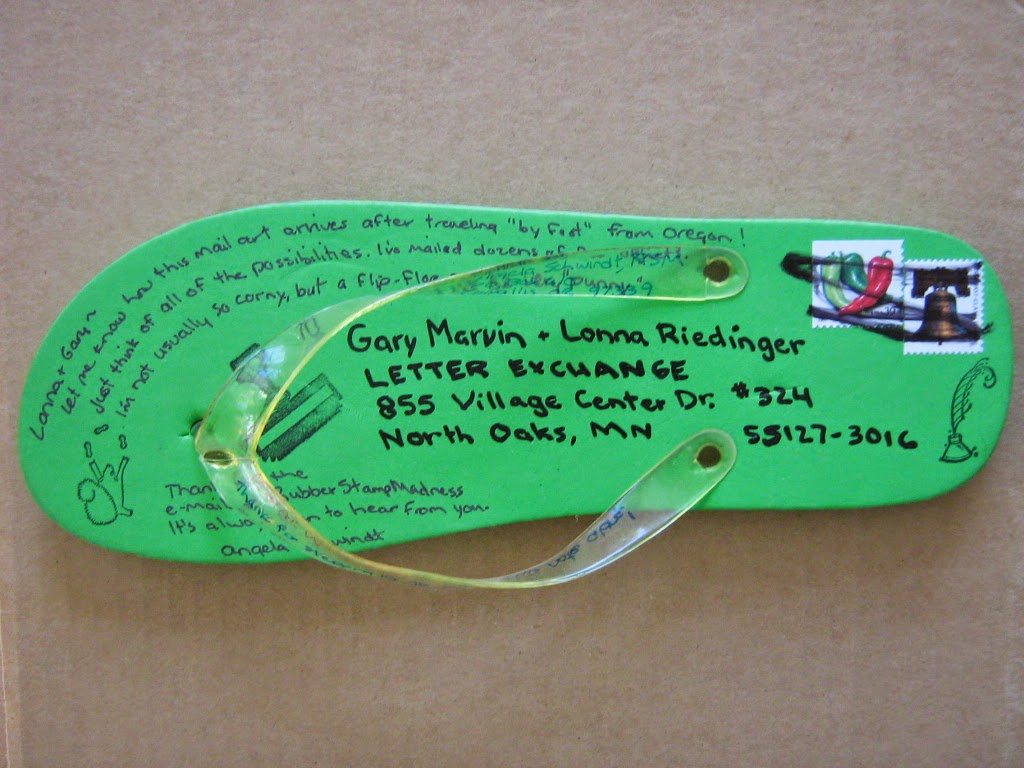 Lonna + Gary ~
Let me know how this mail art arrives after traveling "by foot" from Oregon!
& Just think of all of the possibilities. I've mailed dozens of
I'm not usually so corny, but a flip-flop
Gary Marvin + Lonna Riedinger
LETTER EXCHANGE
855 Village Center Dr. #324
North Oaks, MN 55127-3016
the
RubberStampMadness
e-mail
It's to hear from you.
Angela Schwindt